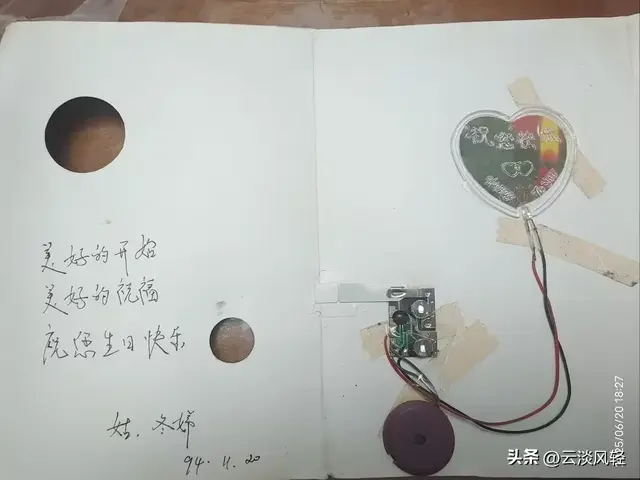 美好的开始
美好的祝福
祝您生日快乐
姑.冬娣
94.11.20
祝您快乐
05/06/20 18:27
头条 @云淡风轻